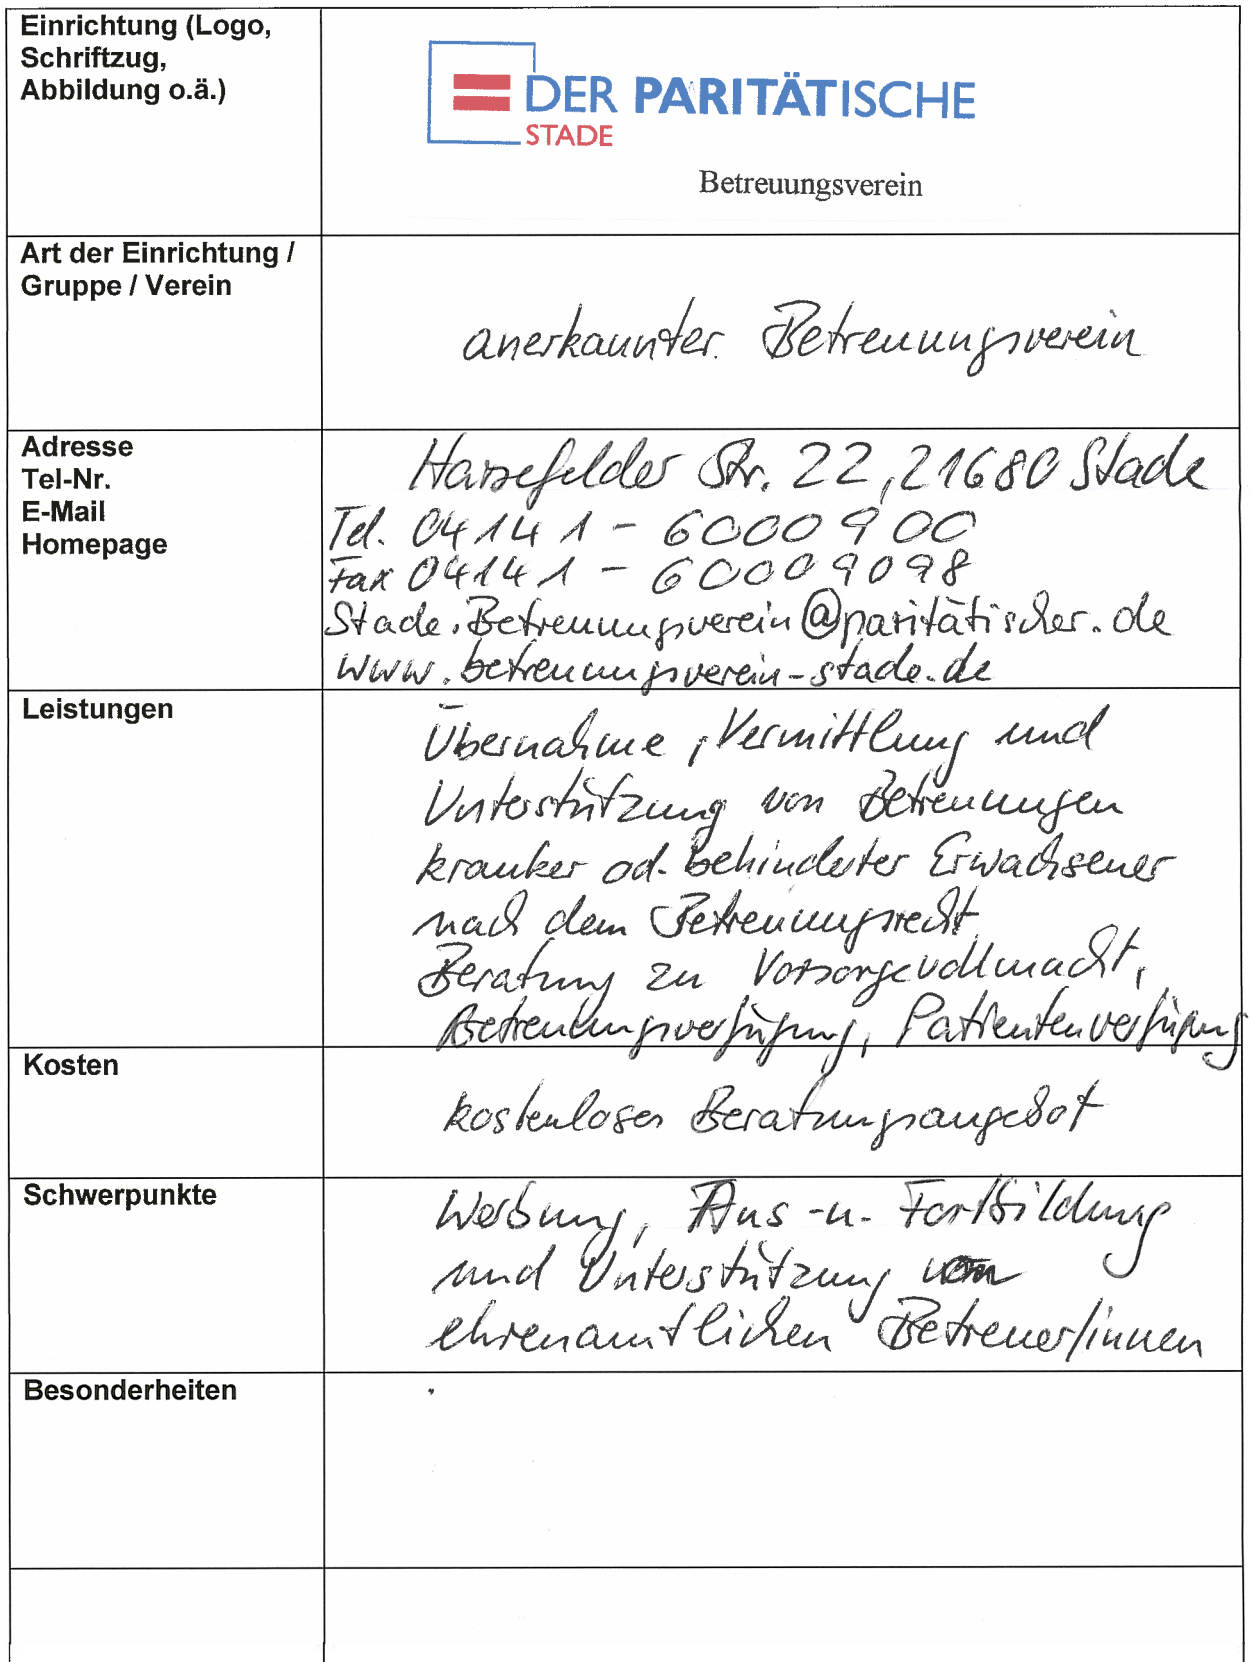 Einrichtung (Logo,
Schriftzug,
Abbildung o.ä.)
DER PARITÄTISCHE
STADE
Betreuungsverein
Art der Einrichtung /
Gruppe / Verein
anerkannter Betreuungsverein
Adresse
Tel-Nr.
E-Mail
Homepage
Harsefelder Str. 22, 21680 Stade
Tel. 04141 - 6000900
Fax 04141 - 60009098
Stade.Betreuungsverein@paritätischer.de
www.betreuungsverein-stade.de
Leistungen
Übernahme, Vermittlung und
Unterstützung von Betreuungen
kranker od. behinderter Erwachsener
nach dem Betreuungsrecht
Beratung zu Vorsorgevollmacht,
Betreuungsverfügung, Patientenverfügung
Kosten
kostenloses Beratungsangebot
Schwerpunkte
Werbung, Aus -u. Fortbildung
und Unterstützung von
ehrenamtlichen Betreuer/innen
Besonderheiten